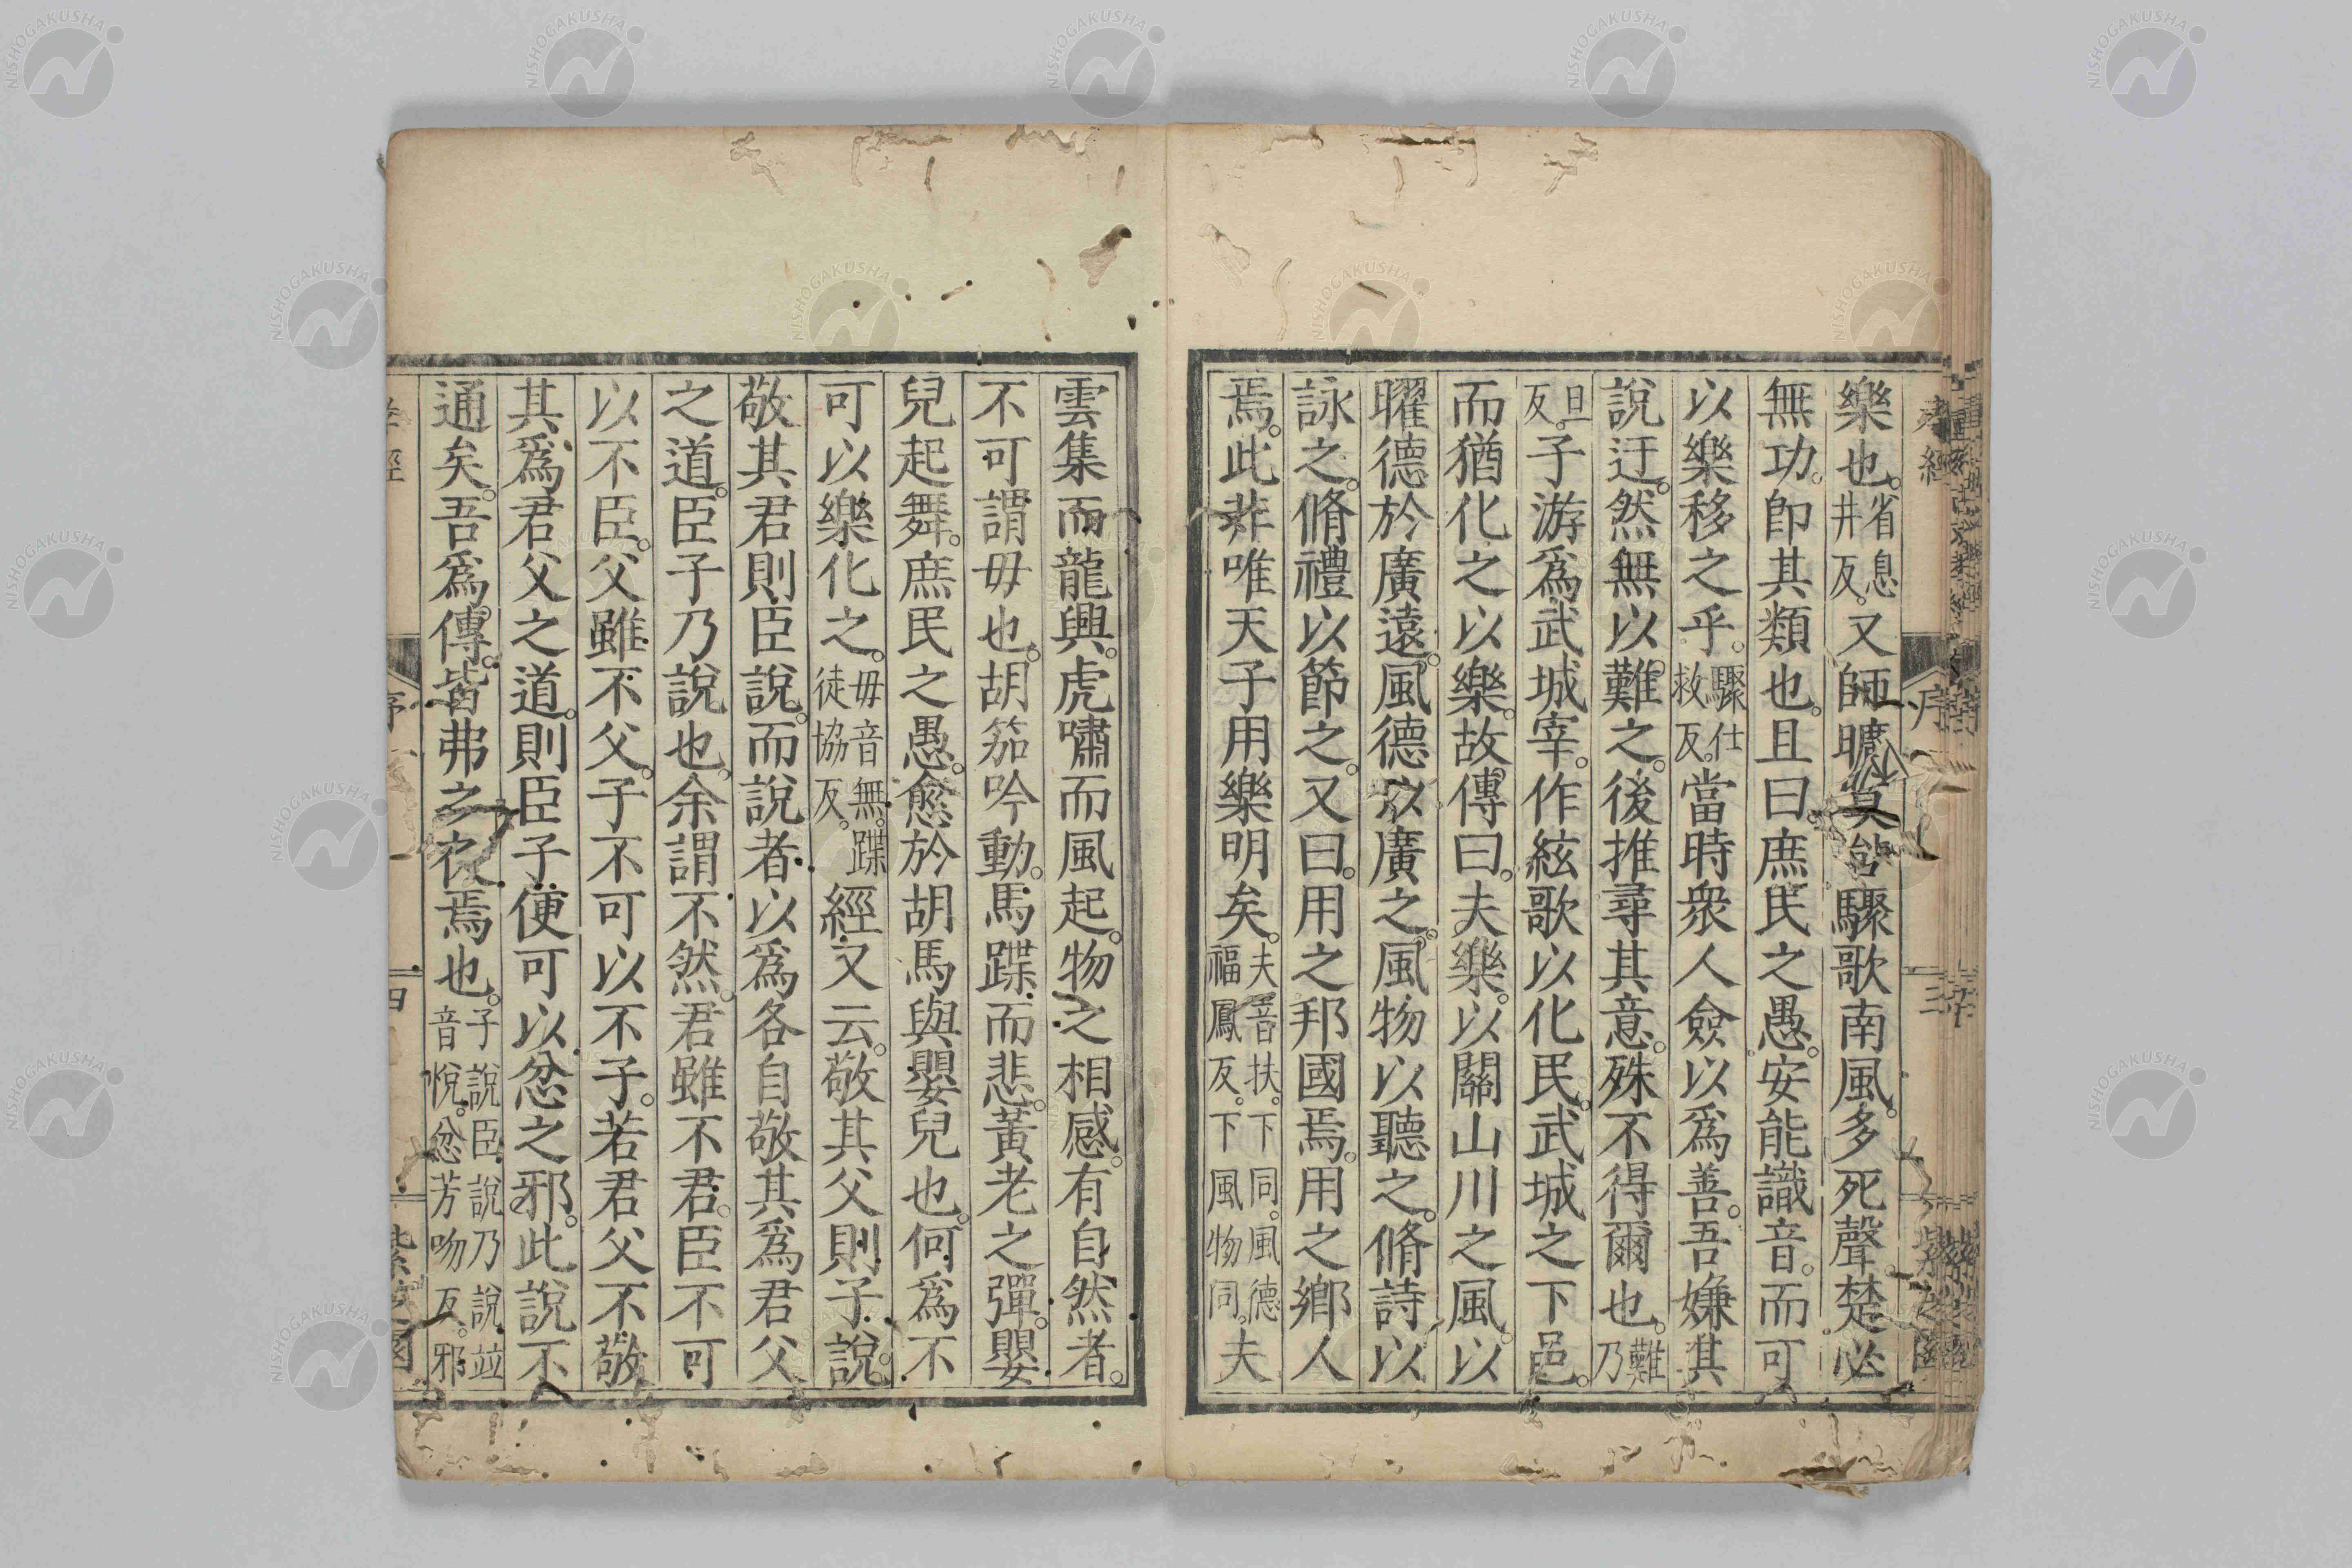 樂也。省息井反。又師曠驟歌南風。多死聲。楚必
無功。即其類也。且曰。庶民之愚。安能識音。而可
以樂移之乎。驟仕救反。當時衆人僉以爲善。吾嫌其
說迂。然無以難之。後推尋其意。殊不得爾也。難乃
旦反。子游爲武城宰。作絃歌以化民。武城之下邑。
而猶化之以樂。故傳曰。夫樂。以關山川之風。以
曜德於廣遠。風德以廣之。風物以聽之。脩詩以
詠之。脩禮以節之。又曰。用之邦國焉。用之鄉人
焉。此非唯天子用樂明矣。夫音扶。下同。風德福鳳反。下風物同。夫
雲集而龍興。虎嘯而風起。物之相感。有自然者。
不可謂毋也。胡笳吟動。馬蹀而悲。黃老之彈。嬰
兒起舞。庶民之愚。愈於胡馬與嬰兒也。何爲不
可以樂化之。毋音無。蹀徒協反。經又云。敬其父則子說。
敬其君則臣說。而說者以爲各自敬其爲君父
之道。臣子乃說也。余謂不然。君雖不君。臣不可
以不臣。父雖不父。子不可以不子。若君父不敬
其爲君父之道。則臣子便可以忿之邪。此說不
通矣。吾爲傳。皆弗之從焉也。子說臣說乃說說竝音悅。忿芳吻反。邪
孝經
序
三
四
NISHOGAKUSHA